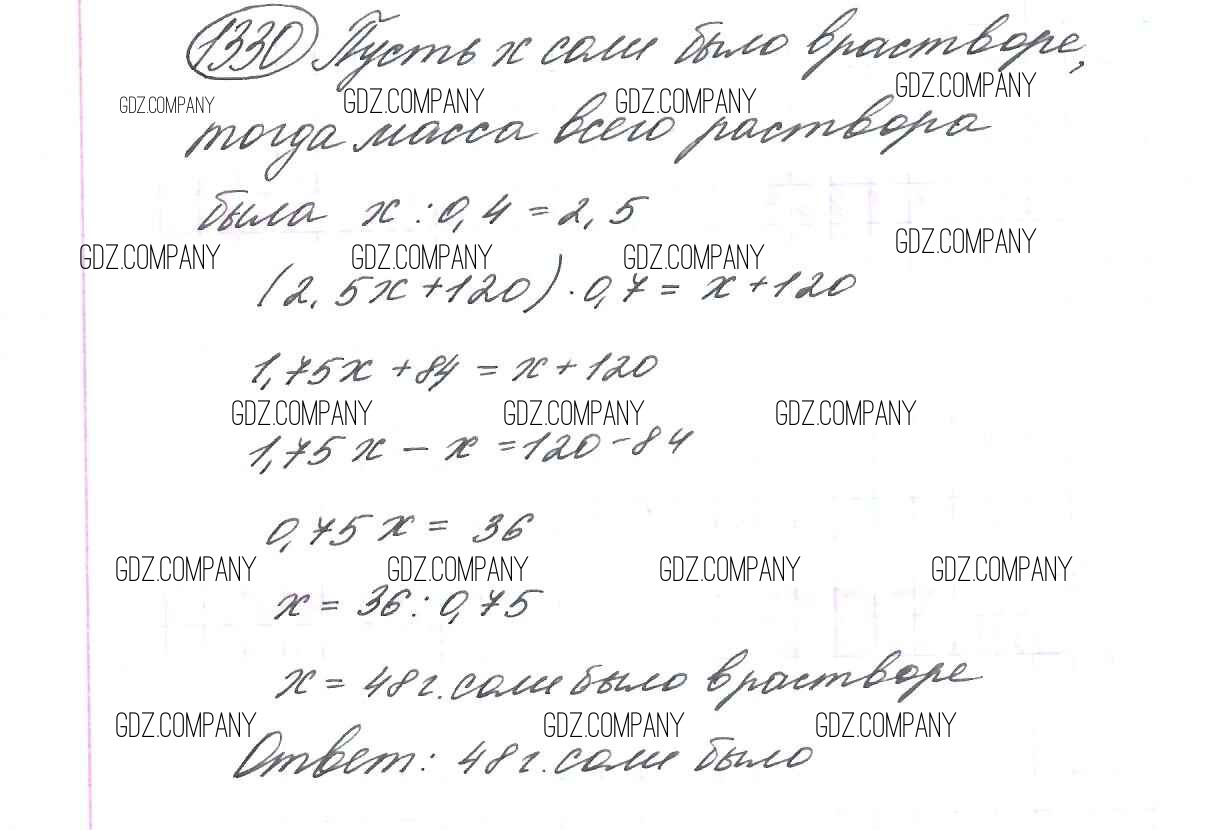 1330 Пусть х соли было в растворе,
GDZ.COMPANY GDZ.COMPANY GDZ.COMPANY GDZ.COMPANY
тогда масса всего раствора
была х : 0,4 = 2,5
GDZ.COMPANY GDZ.COMPANY GDZ.COMPANY GDZ.COMPANY
(2,5х + 120) · 0,7 = х + 120
1,75х + 84 = х + 120
GDZ.COMPANY GDZ.COMPANY GDZ.COMPANY
1,75х – х = 120 – 84
0,75х = 36
GDZ.COMPANY GDZ.COMPANY GDZ.COMPANY GDZ.COMPANY
х = 36 : 0,75
х = 48 г. соли было в растворе
GDZ.COMPANY GDZ.COMPANY GDZ.COMPANY
Ответ: 48 г. соли было